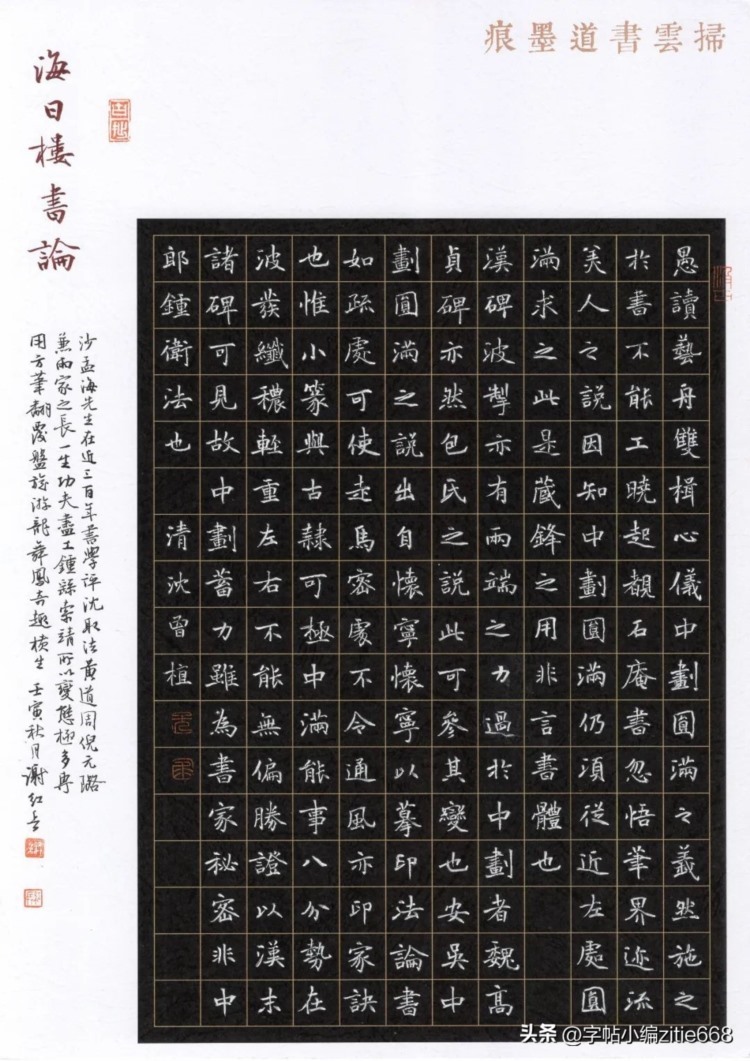 掃雲書道墨痕
海日樓書論
愚讀藝舟雙楫心儀中劃圓滿之義然施之
於書不能工曉起覩石庵書忽悟筆界迹流
美人之說因知中劃圓滿仍須從近左處圓
滿求之此是蔵鋒之用非言書體也
漢碑波掣亦有兩端之力過於中劃者魏高
貞碑亦然包氏之說此可參其變也安吳中
劃圓滿之說出自懷寧懷寧以摹印法論書
如疏處可使走馬密處不令通風亦印家訣
也惟小篆與古隸可極中滿能事八分勢在
波發纖穠輕重左右不能無偏勝證以漢末
諸碑可見故中劃蓄力雖為書家秘密非中
郎鍾衛法也 清沈曾植
沙孟海先生在近三百年書學評沈取法黃道周倪元璐
兼兩家之長一生功夫盡工鍾繇索靖所以變態極多再
用方筆翻覆盤旋游龍舞鳳奇趣橫生 壬寅秋月謝紅
头条 @字帖小编zitie668